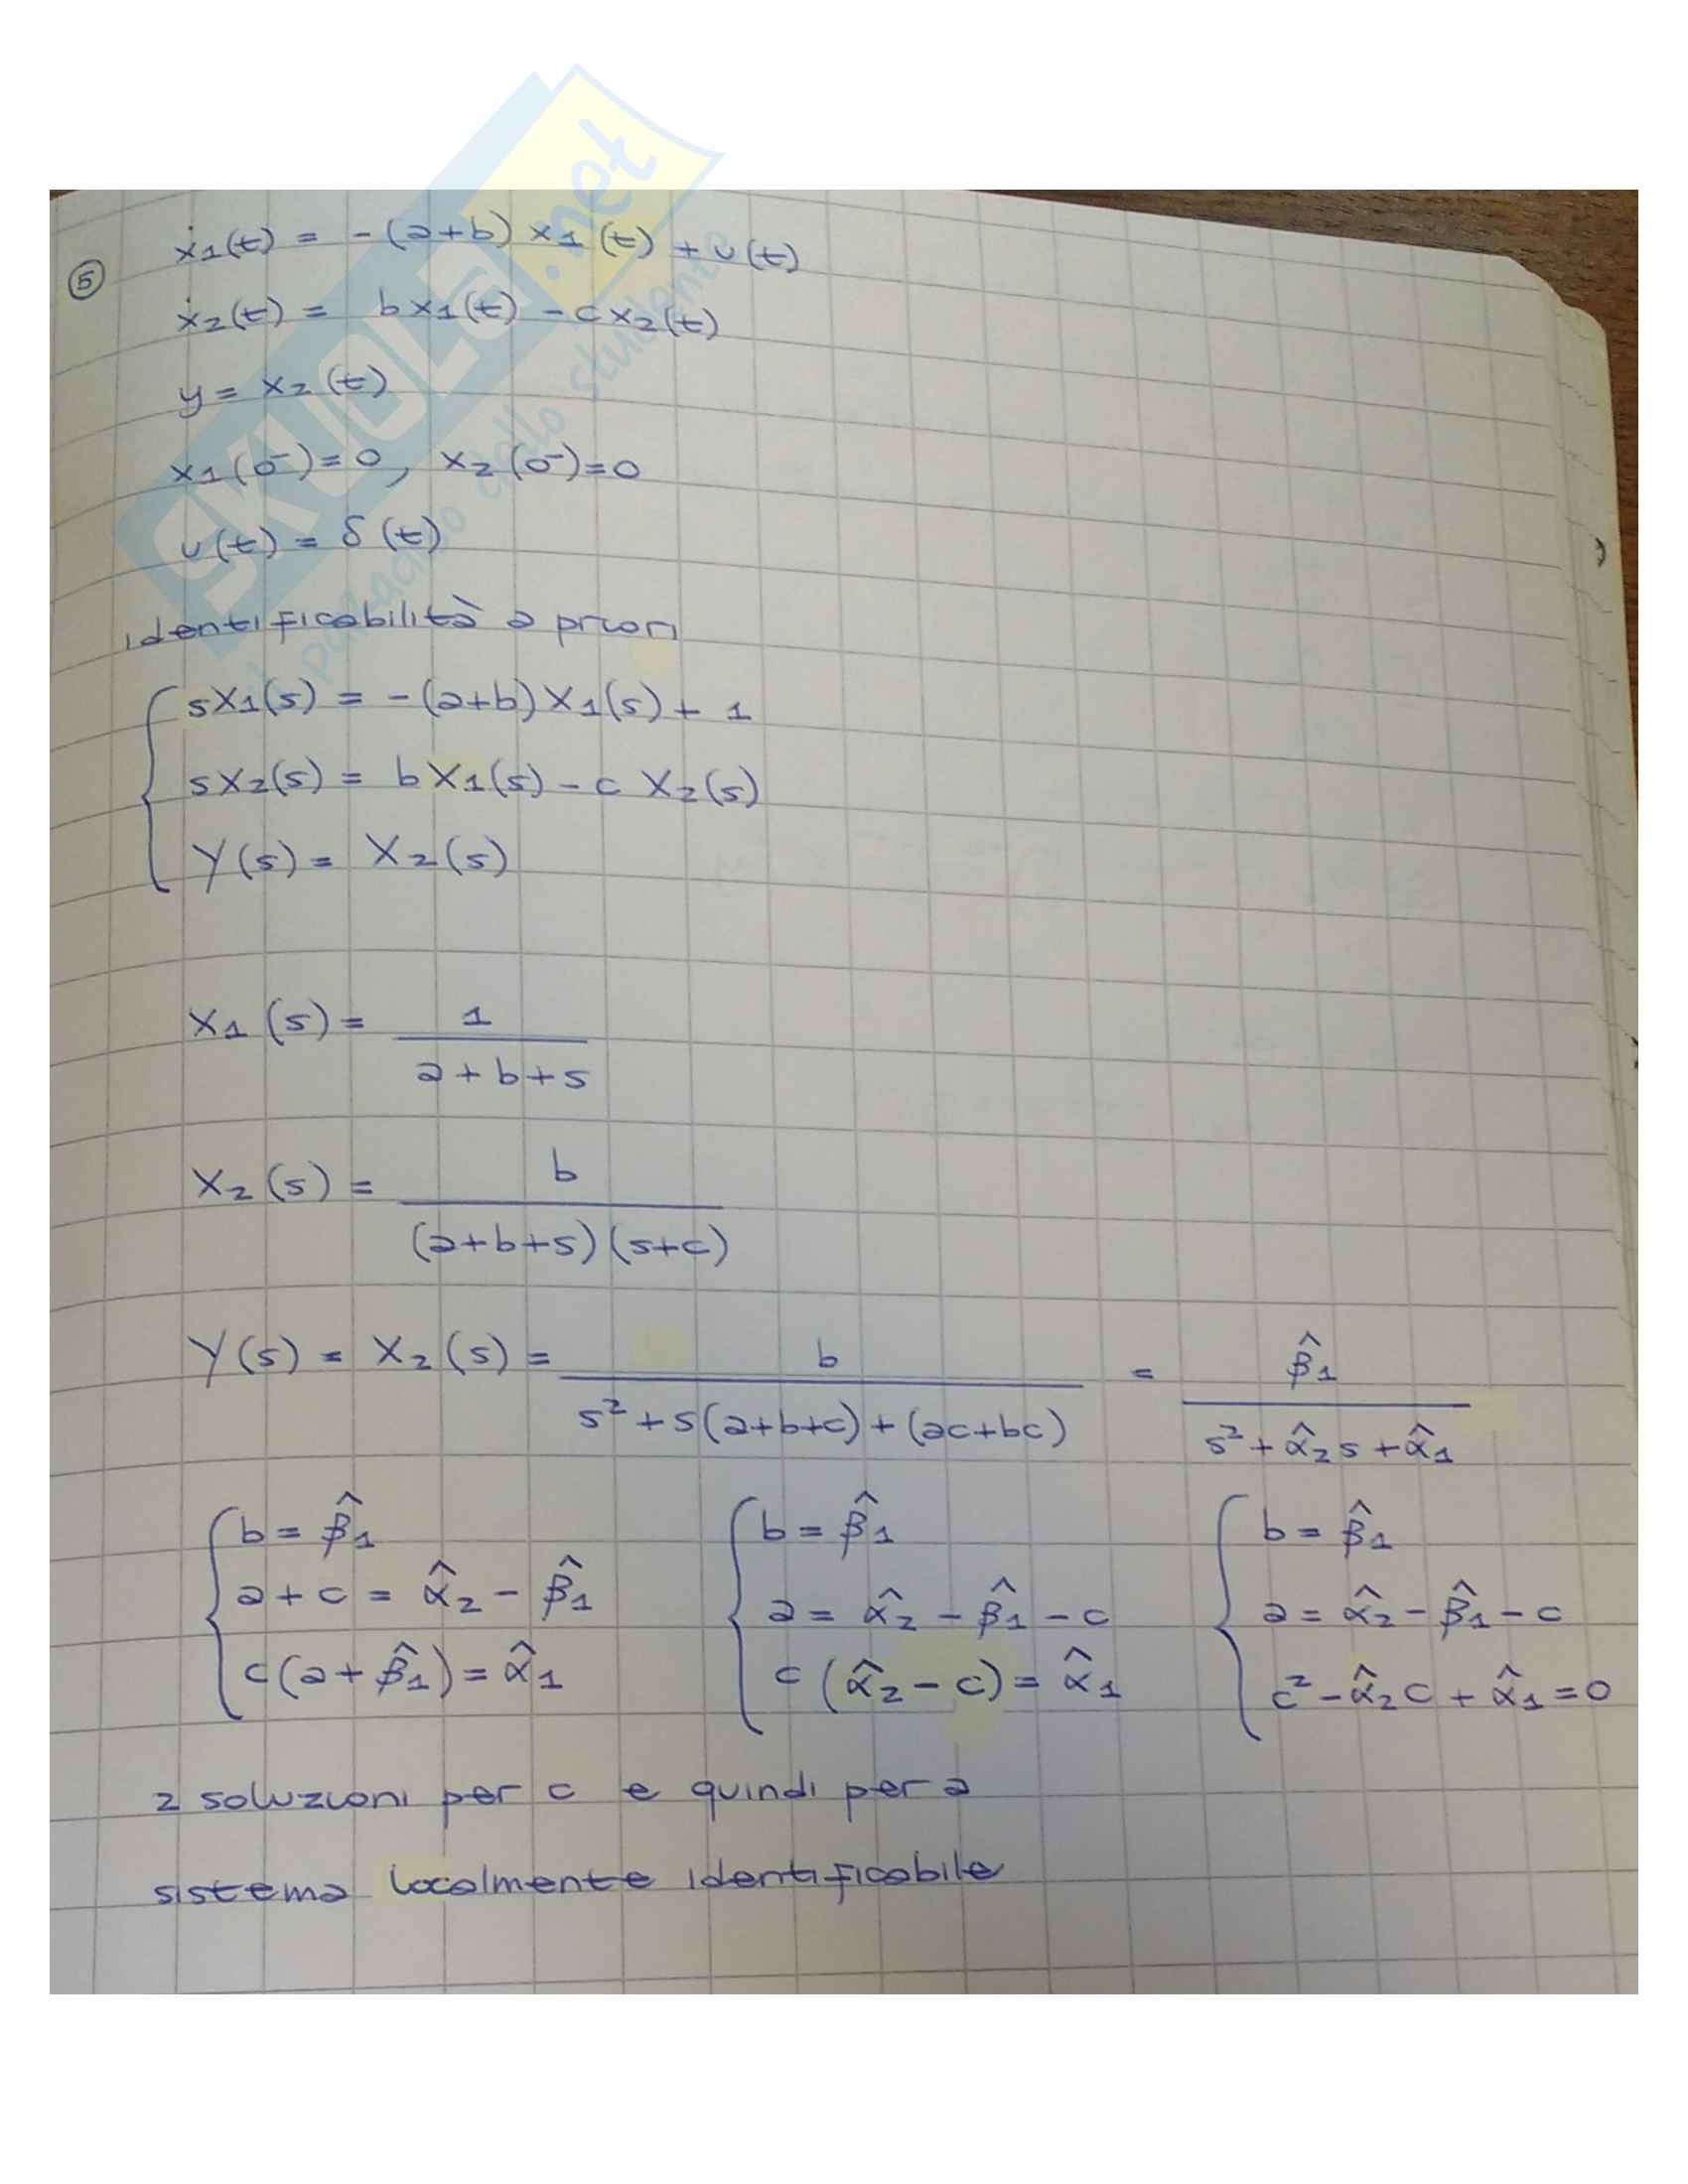 SKUOLA.net
il paradiso dello studente
⑤ ẋ1(t) = -(a+b) x1(t) + u(t)
ẋ2(t) = bx1(t) - cx2(t)
y = x2(t)
x1(0⁻)=0, x2(0⁻)=0
u(t) = δ(t)
identificabilità a priori
sX1(s) = -(a+b)X1(s) + 1
sX2(s) = bX1(s) - c X2(s)
Y(s) = X2(s)
X1(s) = 1 / (a+b+s)
X2(s) = b / ((a+b+s)(s+c))
Y(s) = X2(s) = b / (s²+s(a+b+c)+(ac+bc)) = β̂1 / (s²+α̂2s+α̂1)
b = β̂1 b = β̂1 b = β̂1
a+c = α̂2 - β̂1 a = α̂2 - β̂1 - c a = α̂2 - β̂1 - c
c(a+β̂1) = α̂1 c(α̂2-c) = α̂1 c²-α̂2c+α̂1=0
2 soluzioni per c e quindi per a
sistema localmente identificabile